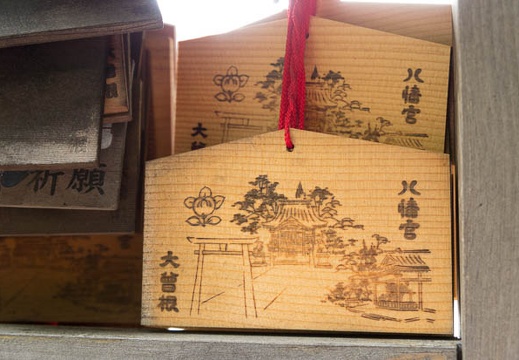 八幡宮
大
八幡宮
大曽根
祈願